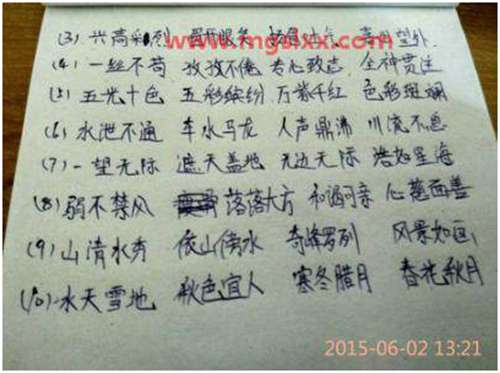 (3) 兴高彩列 眉开眼笑 喜出望外
www.mgslxx.com
(4) 一丝不苟 孜孜不倦 专心致志 全神贯注
(5) 五光十色 五彩缤纷 万紫千红 色彩斑斓
(6) 水泄不通 车水马龙 人声鼎沸 川流不息
(7) 一望无际 遮天盖地 无边无际 浩如星海
(8) 弱不禁风 落落大方 和谒可亲 心慈面善
(9) 山清水秀 依山傍水 奇峰罗列 风景如画
(10) 水天雪地 秋色宜人 寒冬腊月 春花秋月
2015-06-02 13:21